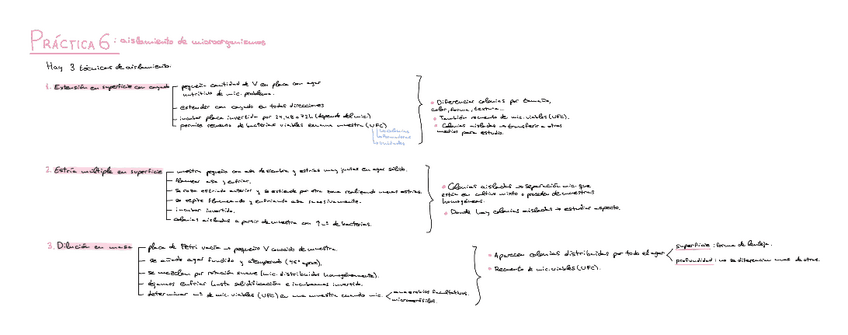 PRÁCTICA 6: aislamiento de microorganismos
Hay 3 técnicas de aislamiento:
1. Extensión en superficie con
pequeña cantidad de V en placa con agar
nutritivo de mic. problema.
extender con en todas direcciones
incubar placa invertida por 24, 48 o 72h (depende del mic.)
permite recuento de bacterias viables en una muestra (UFC)
Diferenciar colonias por tamaño,
color, forma, textura...
También recuento de mic. viables (UFC).
Colonias aisladas → transferir a otros
medios para estudio.
2. Estría múltiple en superficie
muestra pequeña con asa de siembra y estrías muy juntas en agar sólido.
flamear asa y enfriar.
se roza estriado anterior y se extiende por otra zona realizando nuevas estrías.
se repite flameando y enfriando asa sucesivamente.
incubar invertida.
colonias aisladas a partir de muestra con ↑ nº de bacterias.
Colonias aisladas → separación mic. que
están en cultivo mixto o proceden de muestras
homogéneas.
Donde hay colonias aisladas → estudiar aspecto.
3. Dilución en masa
placa de Petri vacía → pequeño V conocido de muestra.
se añade agar fundido y atemperado (45º aprox).
se mezclan por rotación suave (mic. distribuidos homogéneamente).
dejamos enfriar hasta solidificación e incubamos invertida.
determinar nº de mic. viables (UFC) en una muestra cuando mic.
anaerobios facultativos.
microaerófilos.
Aparecen colonias distribuidas por todo el agar
superficie: forma de lenteja.
profundidad: no se diferencian unas de otras.
Recuento de mic. viables (UFC).